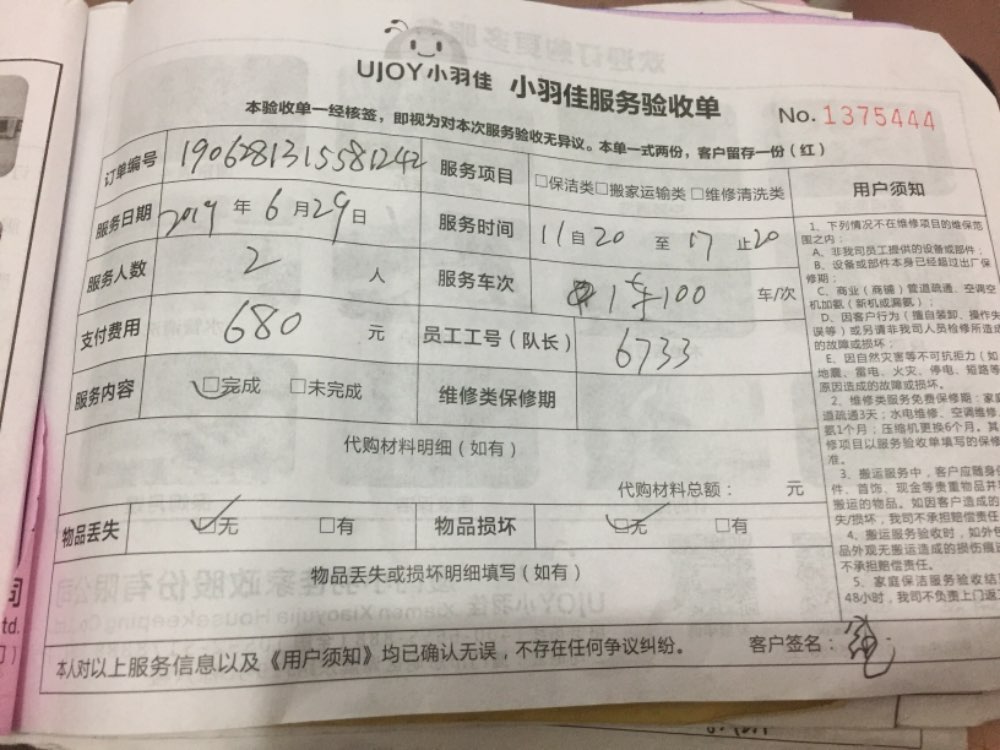 UJOY小羽佳 小羽佳服务验收单
No. 1375444
本验收单一经核签，即视为对本次服务验收无异议。本单一式两份，客户留存一份（红）
订单编号 1906281315581242 服务项目 □保洁类□搬家运输类 □维修清洗类
服务日期 2019 年 6 月 29 日 服务时间 11 自 20 至 17 止 20
服务人数 2 人 服务车次 1车100 车/次
支付费用 680 元 员工工号（队长） 6733
服务内容 □完成 □未完成 维修类保修期
代购材料明细（如有）
代购材料总额： 元
物品丢失 □无 □有 物品损坏 □无 □有
物品丢失或损坏明细填写（如有）
本人对以上服务信息以及《用户须知》均已确认无误，不存在任何争议纠纷。 客户签名：
用户须知
1、下列情况不在维修项目的维保范
围之内：
A、非我司员工提供的设备或部件；
B、设备或部件本身已经超过出厂保
修期；
C、商业（商铺）管道疏通、空调空
机加氨（新机或漏氨）；
D、因客户行为（擅自装卸、操作失
误等）或另请非我司人员检修所造成
的故障或损坏；
E、因自然灾害等不可抗拒力（如
地震、雷电、火灾、停电、短路等
原因造成的故障或损坏。
2、维修类服务免费保修期：家庭
道疏通3天；水电维修、空调维修
氨1个月；压缩机更换6个月。其
修项目以服务验收单填写的保修
准。
3、搬运服务中，客户应随身
件、首饰、现金等贵重物品并
搬运的物品。如因客户造成的
失/损坏，我司不承担赔偿责任
4、搬运服务验收时，如外包
品外观无搬运造成的损伤痕迹
不承担赔偿责任。
5、家庭保洁服务验收结
48小时，我司不负责上门返
司
td.